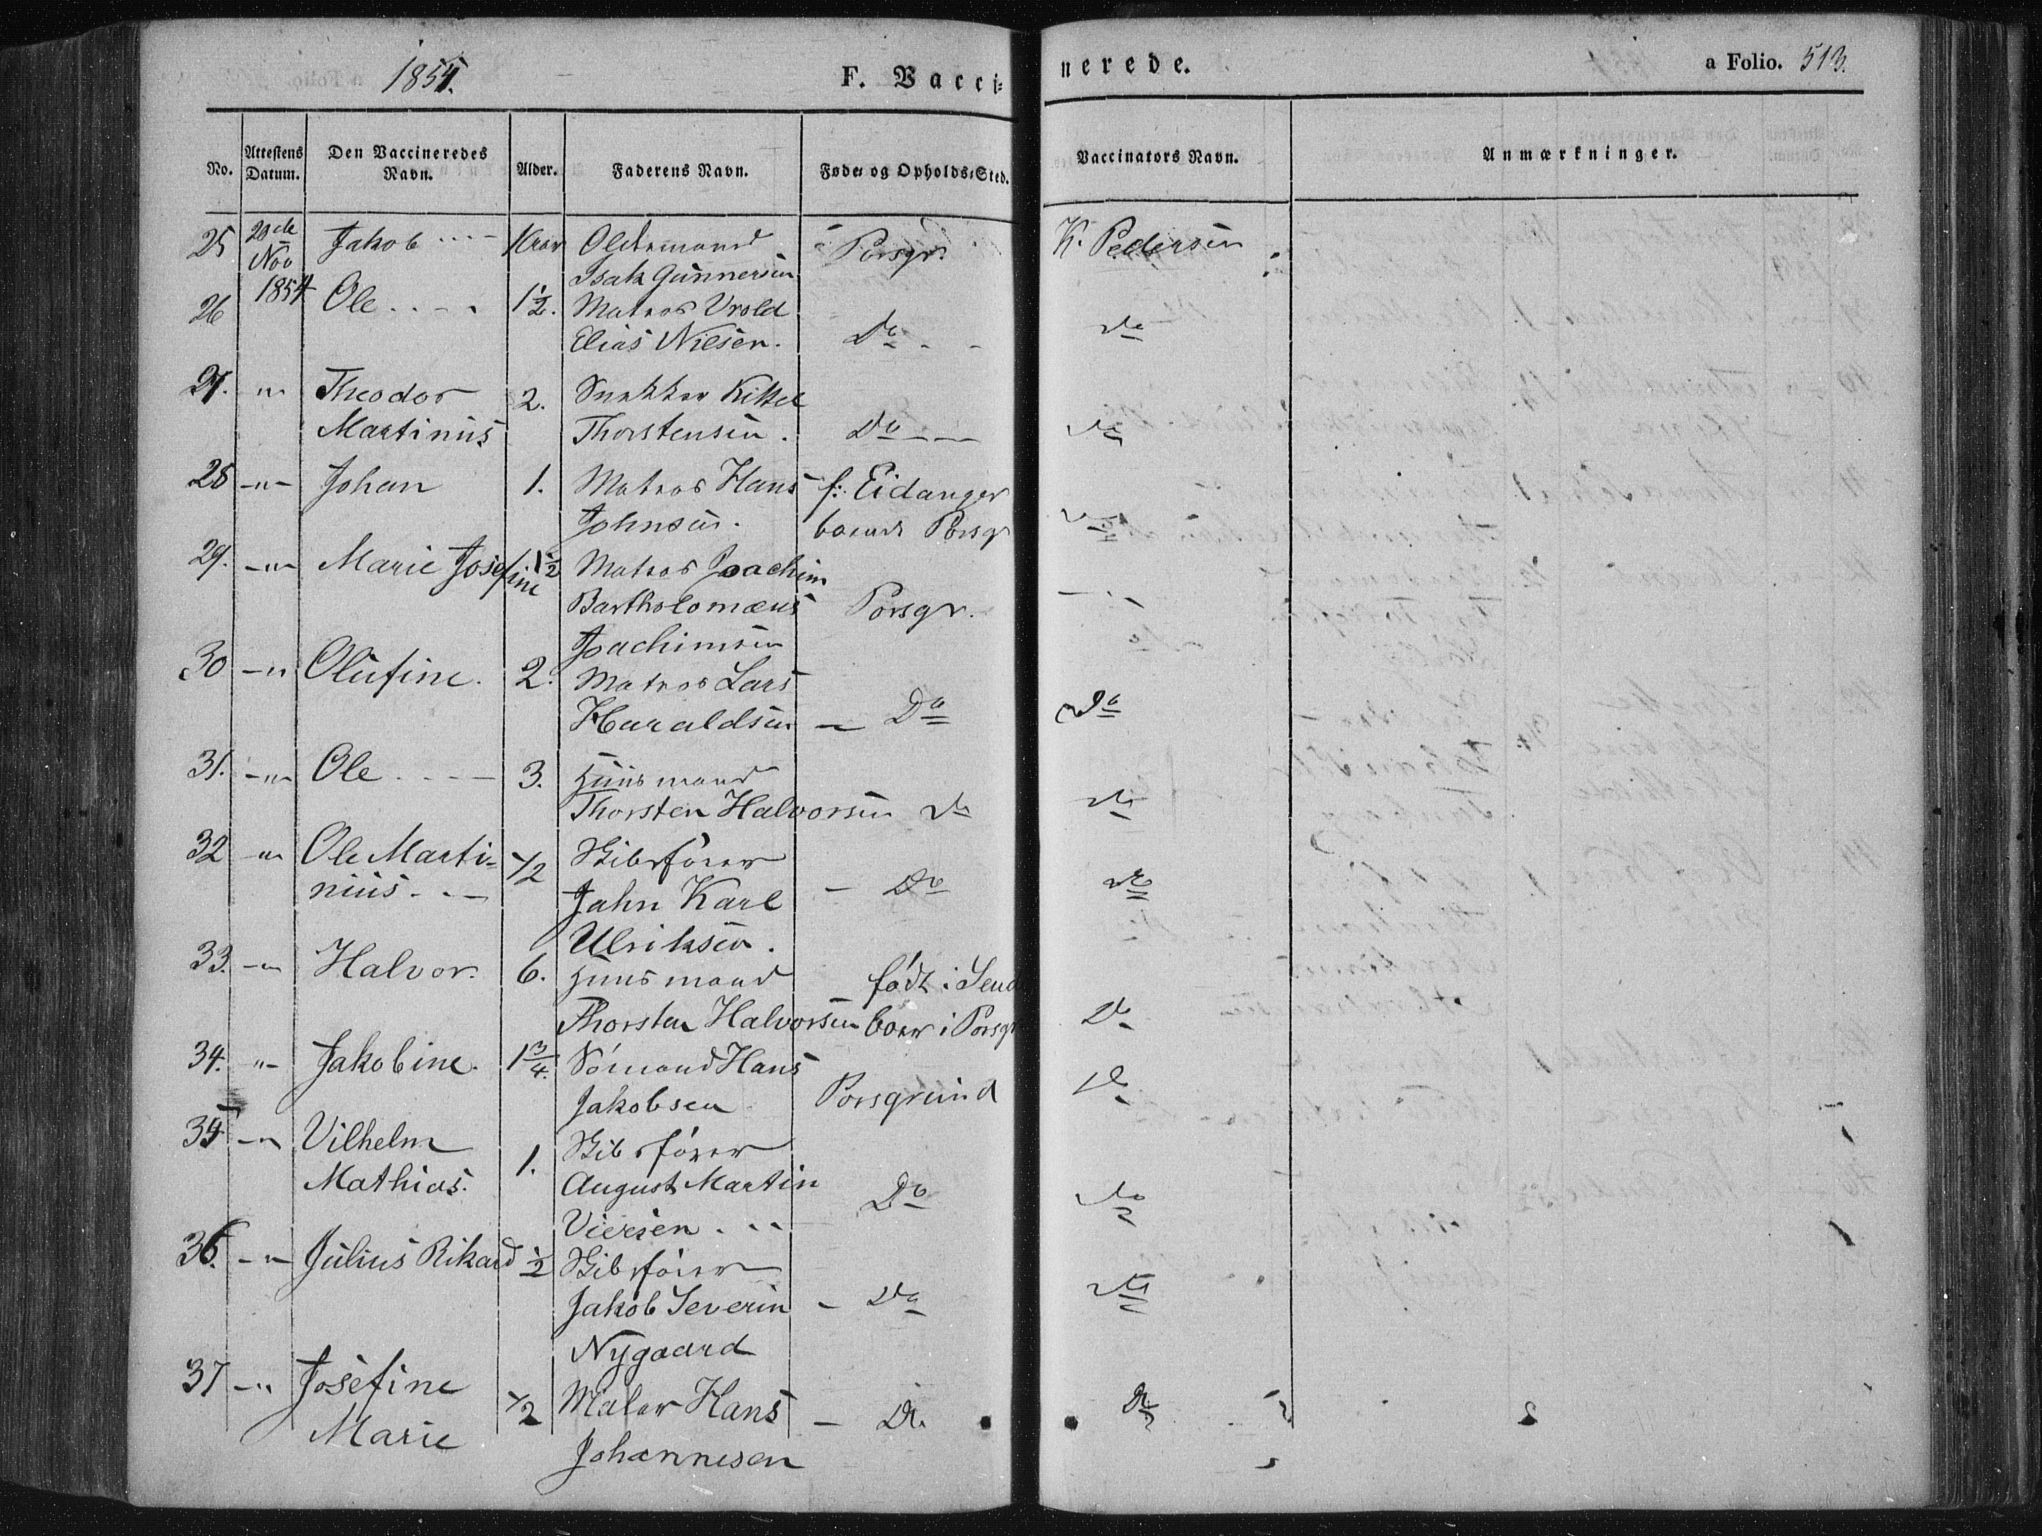 1854.
F. Vacci-
nerede.
a Folio. 513.
No.
Attestens Datum.
Den Vaccineredes Navn.
Alder.
Faderens Navn.
Føde- og Opholds-Sted.
Vaccinators Navn.
Anmærkninger.
25 20de Jakob Oldermand Porsgr. K. Pedersen
Nov Isak Gunnersen
26 1854 Ole 1½. Matros Vrold
Elias Nilsen. Do Do
27. -"- Theodor 2. Snekker Kittel
Martinus Thorstensen. Do Do
28 -"- Johan 1. Matros Hans f: Eidanger
Johnsen. boende Porsgr Do
29. -"- Marie Josefine 1½ Matros Joachim
Bartholomæus Porsgr.
Joachimsen Do
30 -"- Olufine. 2. Matros Lars
Haraldsen - Do Do
31. -"- Ole 3. Huusmand
Thorsten Halvorsen Do Do
32 -"- Ole Marti- ½ Skibsfører
nius Jahn Karl - Do Do
Ulriksen.
33. -"- Halvor. 6. Huusmand født i
Thorsten Halvorsen boer i Porsgr Do
34. "- Jakobine. 1¾. Sømand Hans
Jakobsen Porsgrund Do
35 -"- Vilhelm 1. Skibsfører
Mathias. August Martin Do Do
Viersen
36. -"- Julius Rikard ½ Skibsfører
Jakob Severin - Do Do
Nygaard
37 -"- Josefine ½ Maler Hans - Do. Do
Marie Johannesen